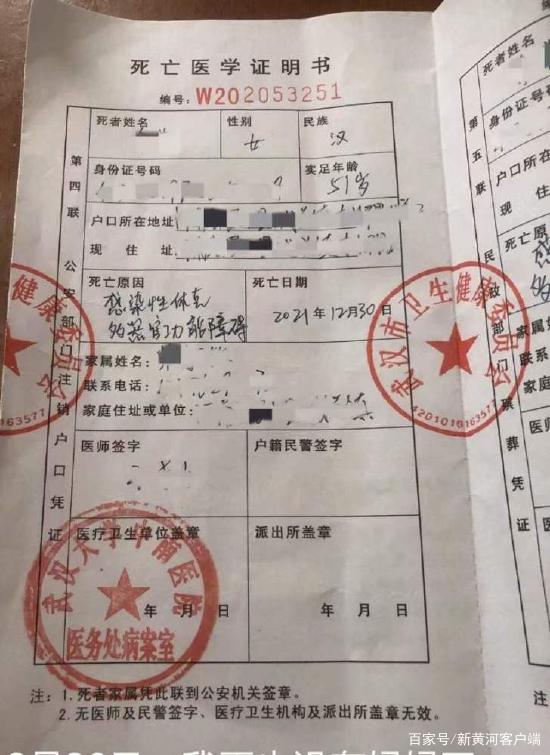 死亡医学证明书
编号:W202053251
死者姓名
性别
民族
女
汉
身份证号码
实足年龄
51岁
户口所在地址
现住址
死亡原因
死亡日期
感染性休克
多器官功能障碍
2021年12月30日
家属姓名:
联系电话:
家庭住址或单位:
医师签字
户籍民警签字
医疗卫生单位盖章
派出所盖章
年 月 日
年 月 日
第四联 公安部门注销户口凭证
武汉市卫生健康委员会
武汉大学中南医院
医务处病案室
注:1.死者家属凭此联到公安机关签章。
2.无医师及民警签字、医疗卫生机构及派出所盖章无效。
死者姓名
身份证号
户口所在
现住
死亡原因
家属姓
联系电
家庭住
医师
医疗
第五联 民政部门殡葬凭证
百家号/新黄河客户端